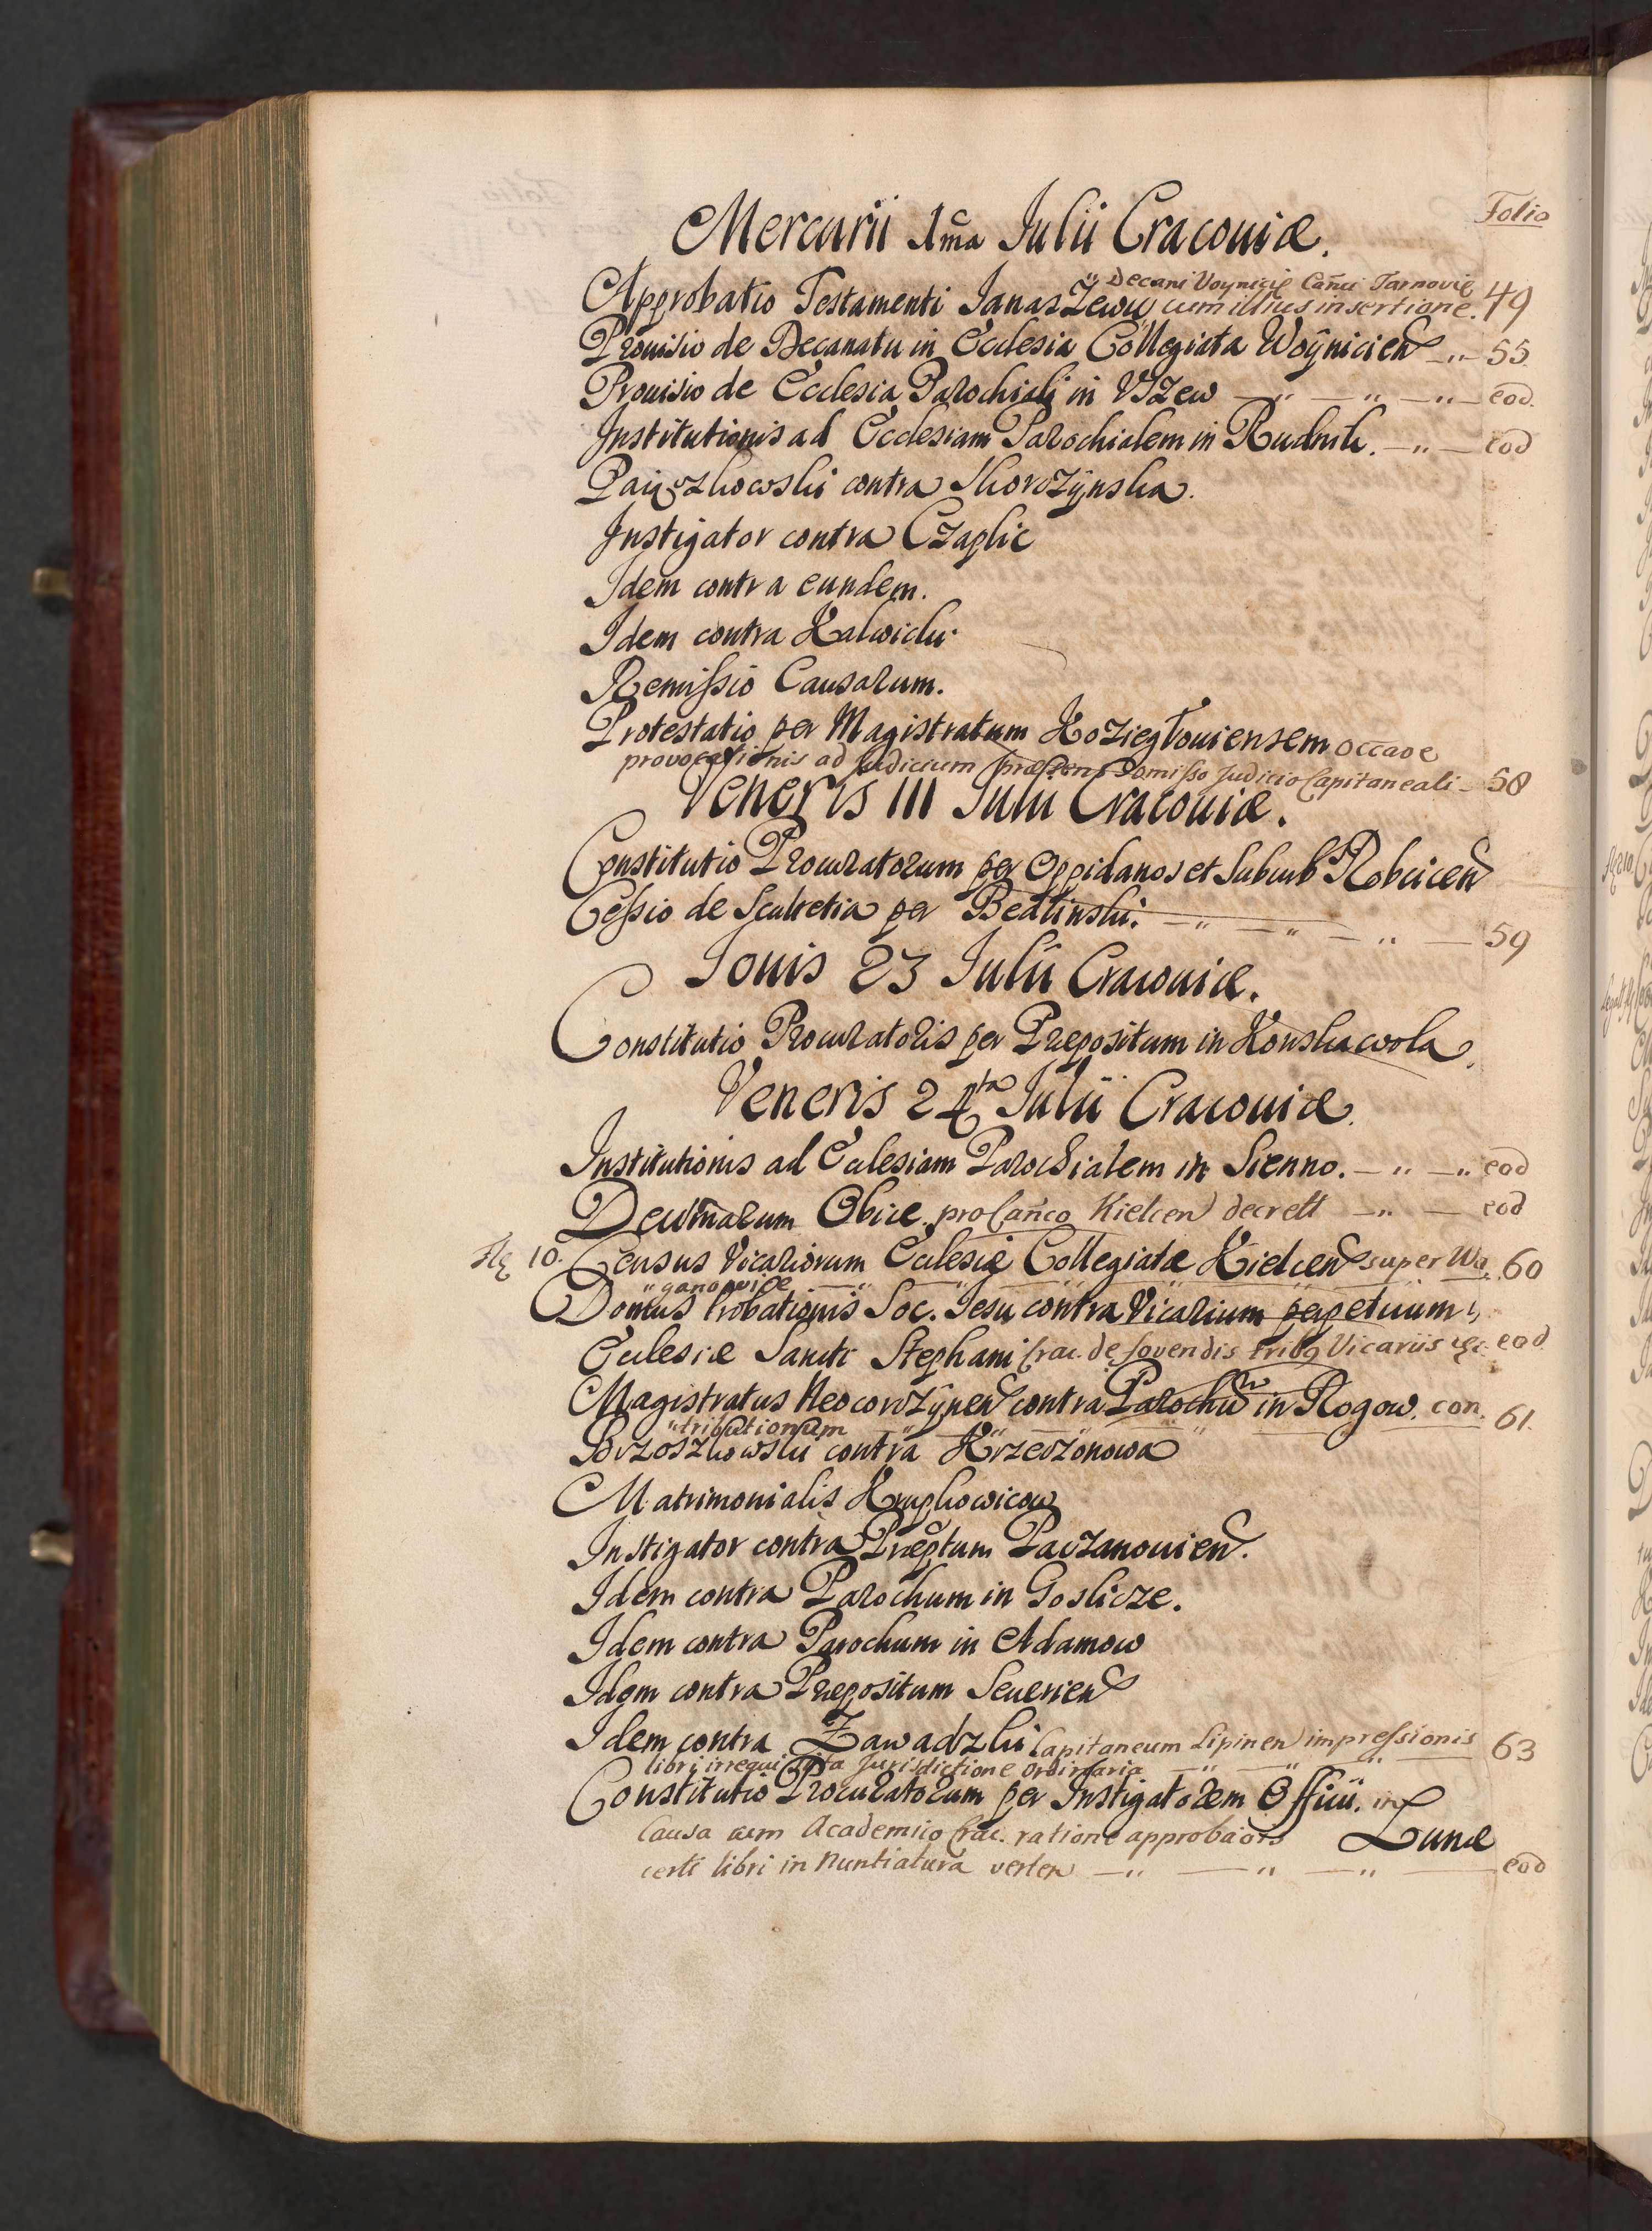 Folio
Mercurii 1ma Iulii Cracouiæ.
" Decani Voynicię Cañci Tarnovię
Approbatio Testamenti cum illius insertione. 49
Prouisio de Decanatu in Ecclesia Collegiata Woÿnicien — " — 55
Prouisio de Ecclesia Parochiali in — " — " — " — eod.
Institutionis ad Ecclesiam Parochialem in Rudnik. — " — eod
contra Skorczÿnska.
Instigator contra Czaplic
Idem contra eundem.
Idem contra Kalwicki
Remissio Causarum.
Protestatio per Magistratum Koziegłouiensem occaoe
provocationis ad Judicium præsens omisso Judicio Capitaneali — 58
Veneris III Iulii Cracouiæ.
Constitutio Procuratorum per Oppidanos et Suburb
Cessio de Scultetia per Bedlinski. — " — " — " — 59
Iouis 23 Iulii Cracouiæ.
Constitutio Procuratoris per Præpositum in Konskawola.
Veneris 24ta Iulii Cracouiæ.
Institutionis ad Eclesiam Parochialem in Sienno. — " — " eod
Decimarum Obice. pro Cañco Kielcen decrett — " — eod
10. Census Vicariorum Eclesię Collegiatæ Kielcen super Wa, 60
"ganowice — " — " — "
Domus Probationis Soc. Iesu contra Vicarium perpetuum
Eclesiæ Sancti Stephani Crac. de fovendis tribq Vicariis &c. eod
Magistratus Neocorczÿnen contra Parochū in Rogow. con. 61.
"tributionum — " — "
Brzoszkowski contra Krzeczonowa
Matrimonialis Krupkowicow
Instigator contra Præptum Paczanouien.
Idem contra Parochum in Goslicze.
Idem contra Parochum in Adamow
Idem contra Præpositum Seuerien
Idem contra Zawadzki Capitaneum Lipinen impressionis 63
libri irrequisita Jurisdictione ordinaria — " — " — "
Constitutio Procuratorum per Instigatorem Officii. in
Causa cum Academico Crac. ratione approbaõis Lunæ
certi libri in Nuntiatura verten — " — " — " — eod